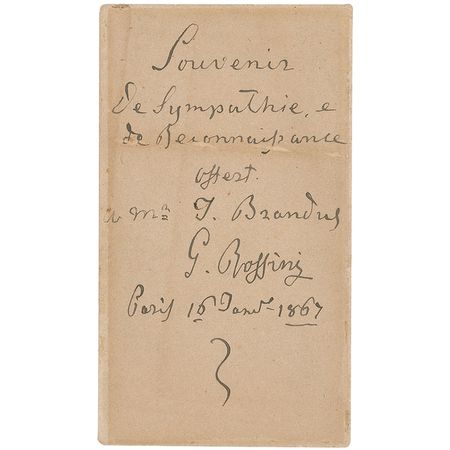 Souvenir
de Sympathie, e
de Reconnaissance
offert.
a Mr. J. Brandus
G. Rossini
Paris 16 Janr. 1867